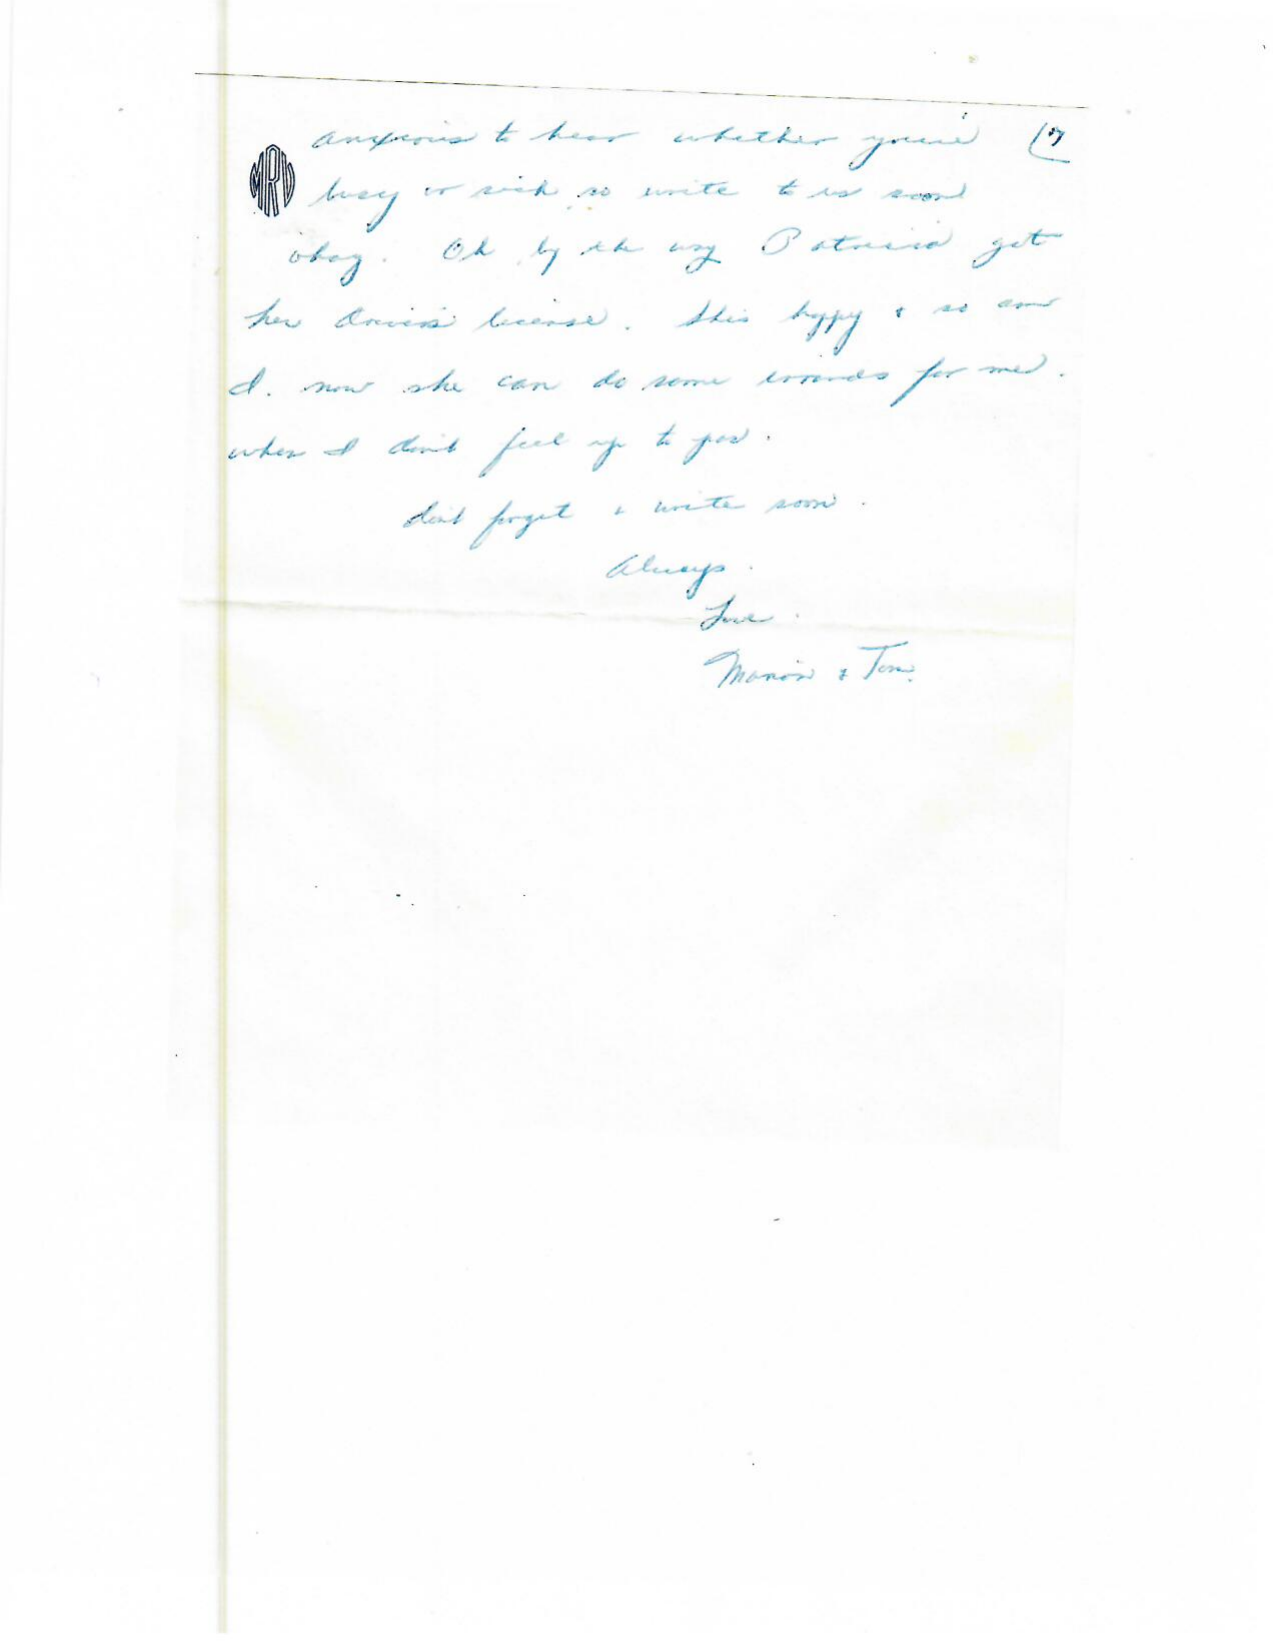 anxious to hear whether you're (7
MRV
busy or sick so write to us soon
okay. Oh by the way Patricia got
her driver's license. She's happy & so am
I. now she can do some errands for me.
when I don't feel up to par.
don't forget & write soon.
Always.
Love.
Marion & Tom.